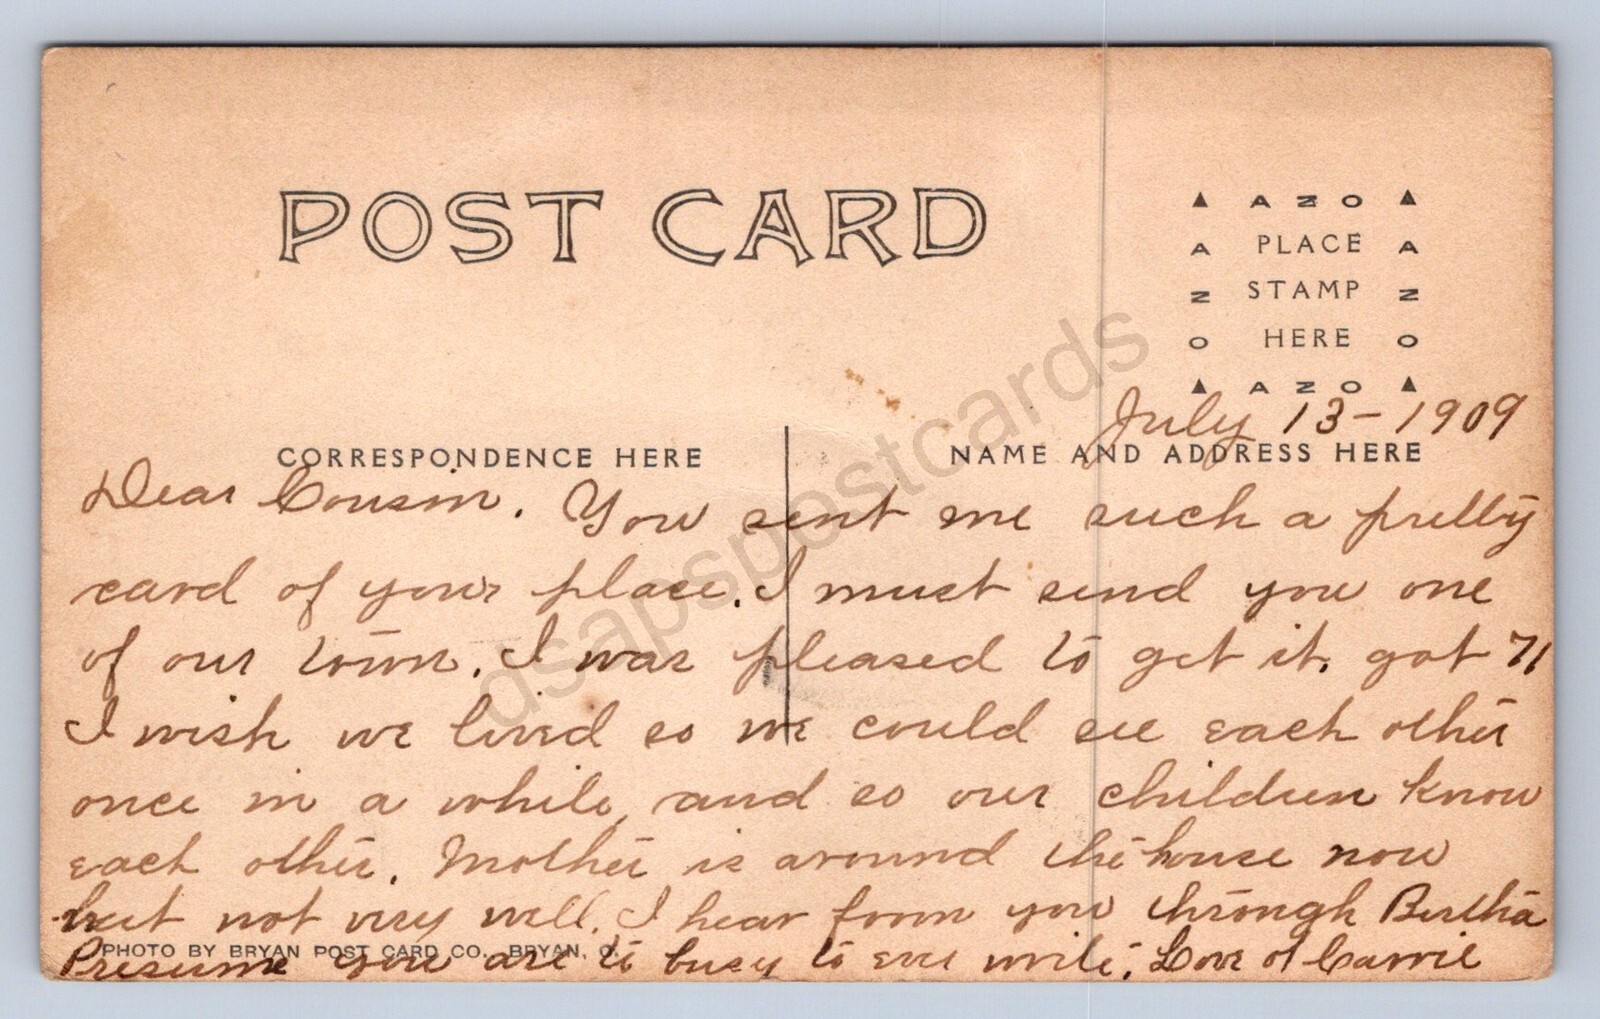 POST CARD
▲ AZO ▲
A PLACE A
Z STAMP Z
O HERE O
▲ AZO ▲
July 13 - 1909
CORRESPONDENCE HERE
NAME AND ADDRESS HERE
Dear Cousin. You sent me such a pretty
card of your place. I must send you one
of our town. I was pleased to get it. got 71
I wish we lived so we could see each other
once in a while, and so our children know
each other. Mother is around the house now
but not very well. I hear from you through Bertha
PHOTO BY BRYAN POST CARD CO., BRYAN, O.
Presume you are to busy to ever write. Love of Carrie
dsapspostcards